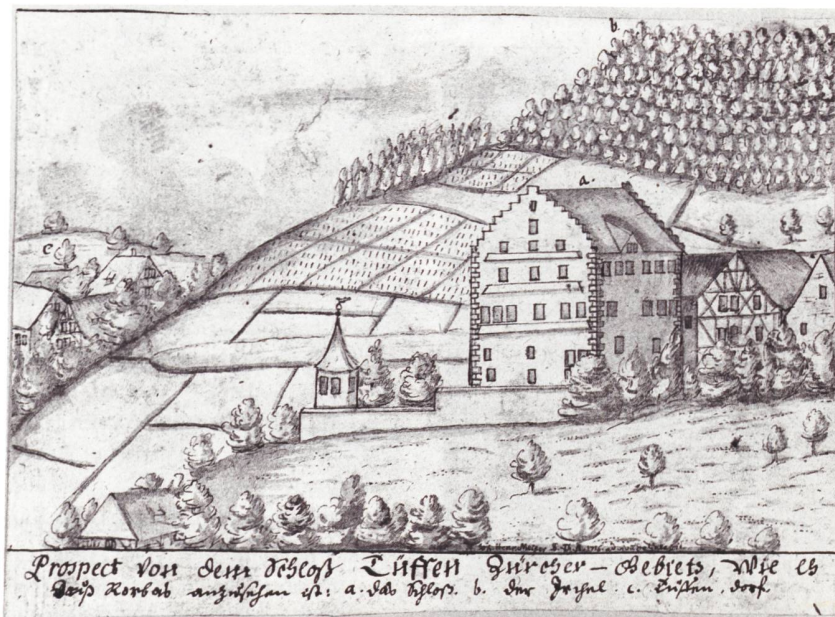 b.
a.
c
Prospect von dem Schloß Tüffen Zürcher-Gebiets, wie es
Rorbas anzusehen ist: a. das Schloß. b. der Irchel. c. Tüffen, dorf.